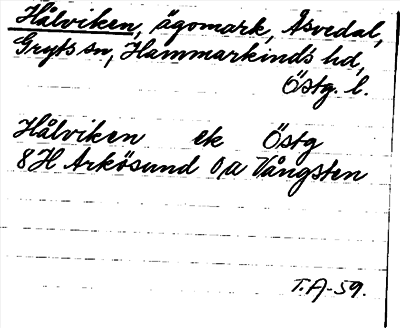 Hålviken, ägomark, Åsvedal,
Gryts sn, Hammarkinds hd,
Östg. l.
Hålviken ek Östg
8H Arkösund 0,a Vångsten
T.A-59.